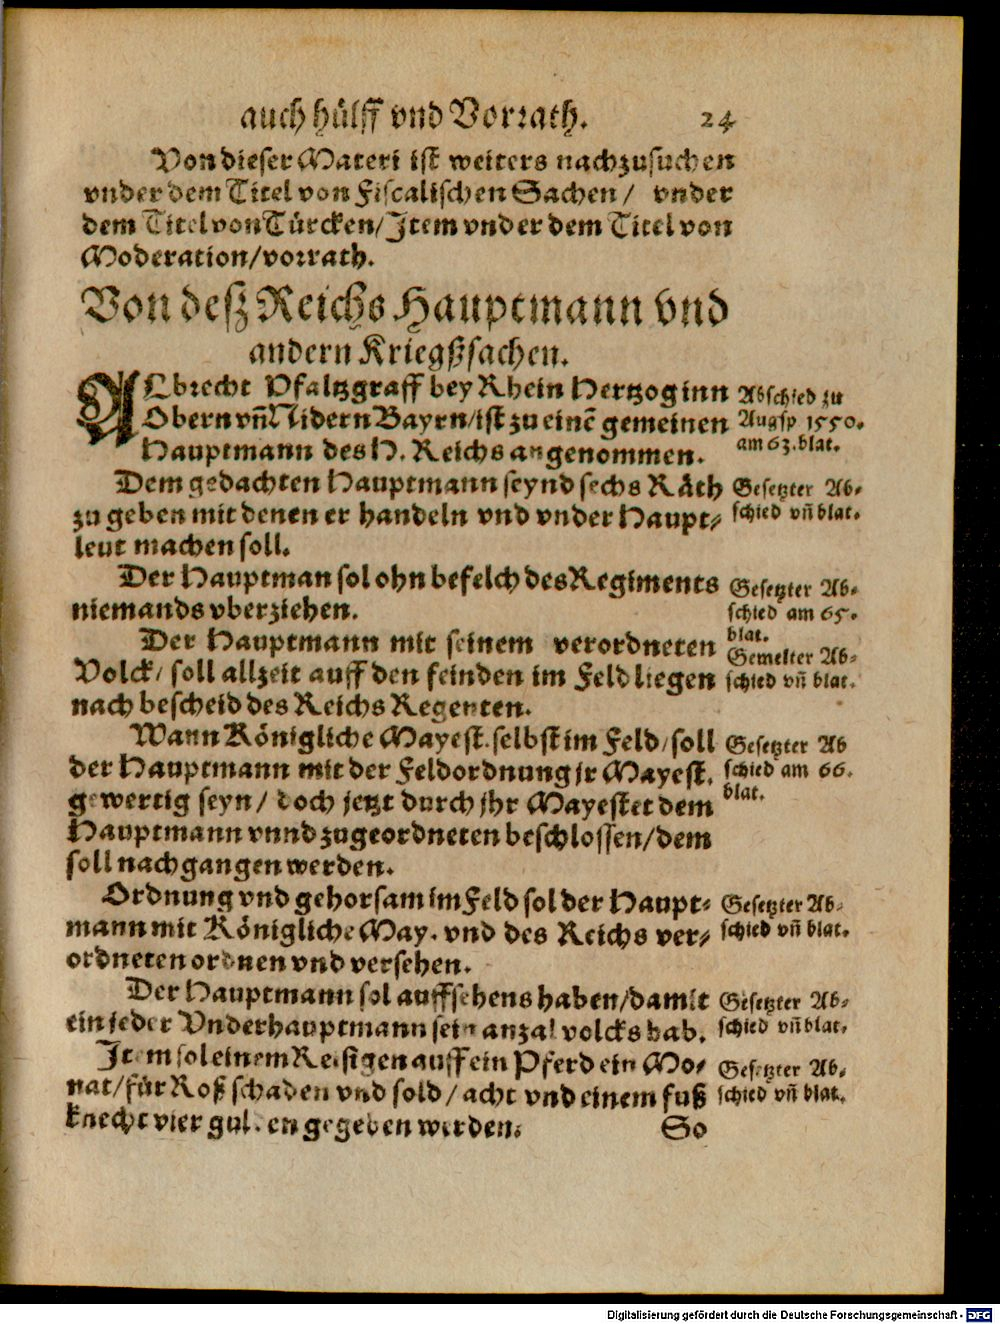 auch hülff vnd Vorrath. 24
Von dieser Materi ist weiters nachzusuchen
vnder dem Titel von Fiscalischen Sachen / vnder
dem Titel von Türcken / Item vnder dem Titel von
Moderation / vorrath.
Von deß Reichs Hauptmann vnd
andern Kriegßsachen.
ALbrecht Pfaltzgraff bey Rhein Hertzog inn
Obern vn̄ Nidern Bayrn / ist zu einē gemeinen
Hauptmann des H. Reichs angenommen.
Abschied zu
Augsp 1550.
am 63. blat.
Dem gedachten Hauptmann seynd sechs Räth
zu geben mit denen er handeln vnd vnder Haupt-
leut machen soll.
Gesetzter Ab-
schied vn̄ blat.
Der Hauptman sol ohn befelch des Regiments
niemands vberziehen.
Gesetzter Ab-
schied am 65.
blat.
Der Hauptmann mit seinem verordneten
Volck / soll allzeit auff den feinden im Feld liegen
nach bescheid des Reichs Regenten.
Gemelter Ab-
schied vn̄ blat.
Wann Königliche Mayest. selbst im Feld / soll
der Hauptmann mit der Feldordnung jr Mayest.
gewertig seyn / doch jetzt durch jhr Mayestet dem
Hauptmann vnnd zugeordneten beschlossen / dem
soll nachgangen werden.
Gesetzter Ab
schied am 66.
blat.
Ordnung vnd gehorsam im Feld sol der Haupt-
mann mit Königliche May. vnd des Reichs ver-
ordneten ordnen vnd versehen.
Gesetzter Ab-
schied vn̄ blat.
Der Hauptmann sol auffsehens haben / damit
ein jeder Vnderhauptmann sein anzal volcks hab.
Gesetzter Ab-
schied vn̄ blat.
Item sol einem Reisigen auff ein Pferd ein Mo-
nat / für Roß schaden vnd sold / acht vnd einem fuß
knecht vier gulden gegeben werden.
Gesetzter Ab-
schied vn̄ blat.
So
Digitalisierung gefördert durch die Deutsche Forschungsgemeinschaft - DFG